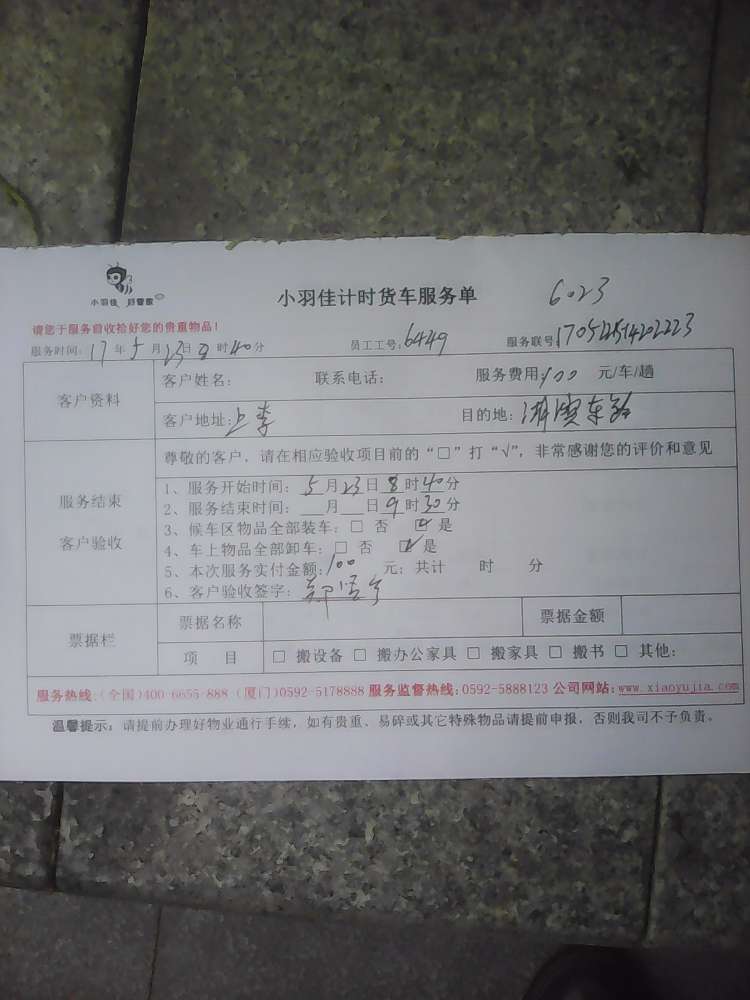 小羽佳 好管家
小羽佳计时货车服务单 6023
请您于服务前收拾好您的贵重物品！
服务时间：17年5月23日8时40分 员工工号：6449 服务联号
客户资料
客户姓名： 联系电话： 服务费用：100 元/车/趟
客户地址：上李 目的地：
服务结束
客户验收
尊敬的客户，请在相应验收项目前的“□”打“√”，非常感谢您的评价和意见
1、服务开始时间：5月23日8时40分
2、服务结束时间：___月___日9时30分
3、候车区物品全部装车：□ 否 ☑ 是
4、车上物品全部卸车：□ 否 ☑ 是
5、本次服务实付金额：100 元；共计 时 分
6、客户验收签字：
票据栏
票据名称 票据金额
项 目 □ 搬设备 □ 搬办公家具 □ 搬家具 □ 搬书 □ 其他：
服务热线：(全国)400-6655-888 (厦门)0592-5178888 服务监督热线：0592-5888123 公司网站：www.xiaoyujia.com
温馨提示：请提前办理好物业通行手续，如有贵重、易碎或其它特殊物品请提前申报，否则我司不予负责。